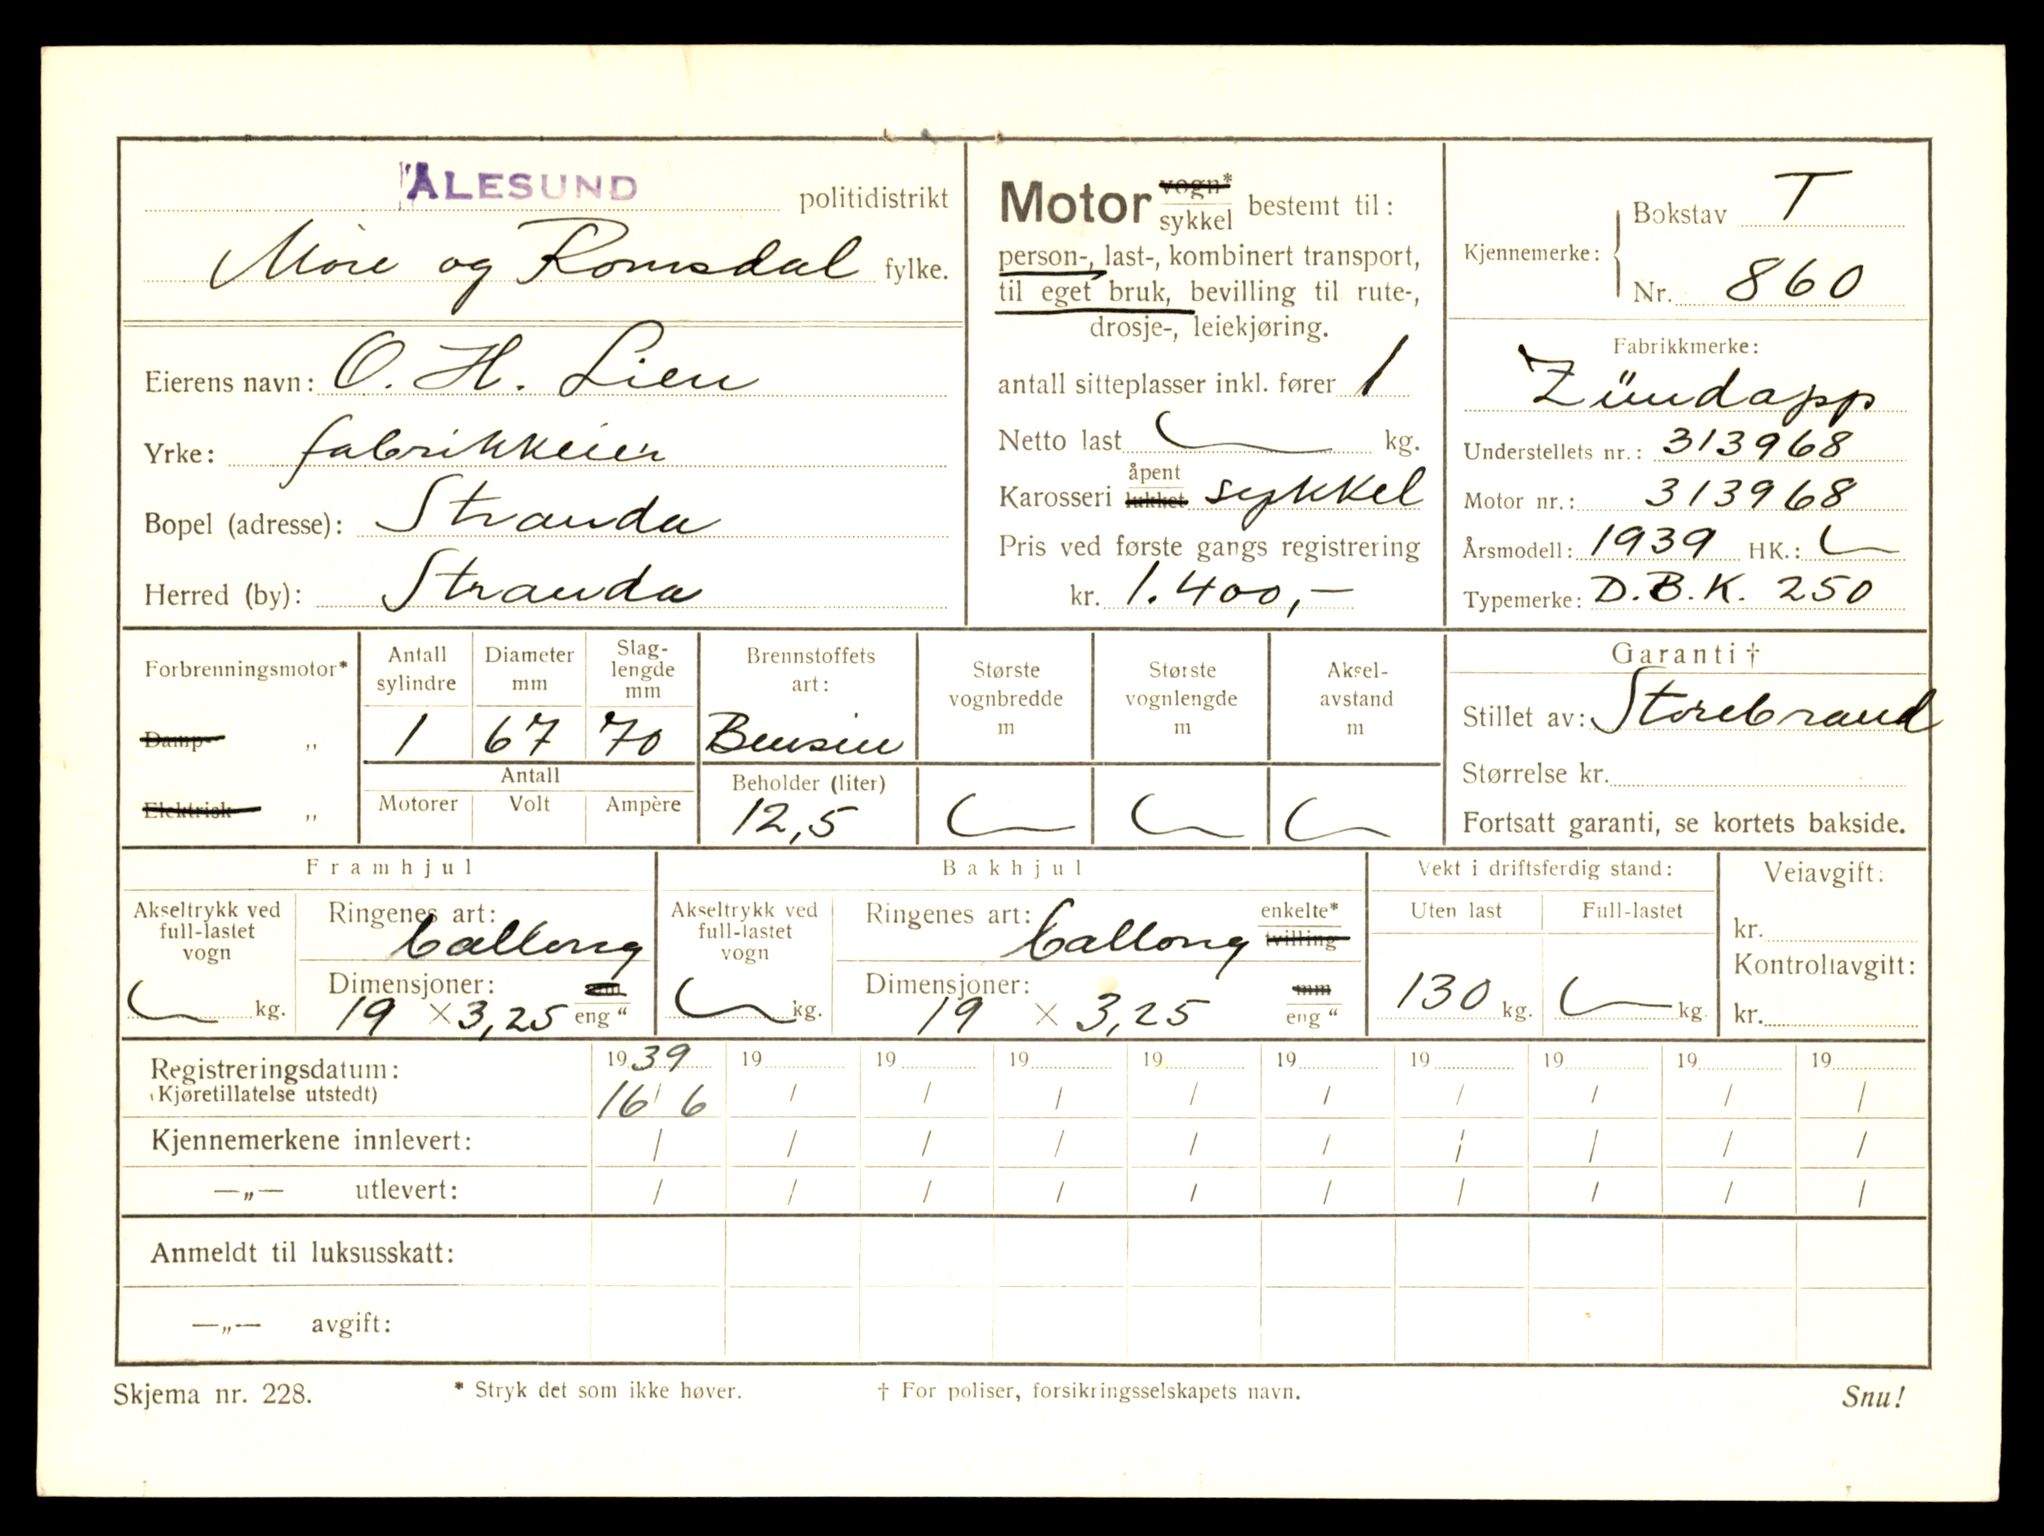 ÅLESUND politidistrikt
Møre og Romsdal fylke.
Eierens navn: O. H. Lien
Yrke: fabrikkeier
Bopel (adresse): Stranda
Herred (by): Stranda
Motor vogn* sykkel bestemt til:
person-, last-, kombinert transport,
til eget bruk, bevilling til rute-,
drosje-, leiekjøring.
antall sitteplasser inkl. fører 1
Netto last kg.
Karosseri åpent lukket sykkel
Pris ved første gangs registrering
kr. 1.400,-
Kjennemerke: Bokstav T
Nr. 860
Fabrikkmerke:
Zündapp
Understellets nr.: 313968
Motor nr.: 313968
Årsmodell: 1939 HK.:
Typemerke: D.B.K. 250
Forbrenningsmotor*
Damp- „
Elektrisk „
Antall sylindre
1
Diameter mm
67
Slag-lengde mm
70
Antall
Motorer Volt Ampère
Brennstoffets art:
Bensin
Beholder (liter)
12,5
Største vognbredde m
Største vognlengde m
Aksel-avstand m
Garanti †
Stillet av: Storebrand
Størrelse kr.
Fortsatt garanti, se kortets bakside.
Framhjul
Akseltrykk ved full-lastet vogn
kg.
Ringenes art: ballong
Dimensjoner: mm
19 × 3,25 eng "
Bakhjul
Akseltrykk ved full-lastet vogn
kg.
Ringenes art: ballong enkelte* tvilling
Dimensjoner: mm
19 × 3,25 eng "
Vekt i driftsferdig stand:
Uten last
130 kg.
Full-lastet
kg.
Veiavgift:
kr.
Kontrollavgift:
kr.
Registreringsdatum: 1939 19 19 19 19 19 19 19 19 19
(Kjøretillatelse utstedt) 16/6 / / / / / / / / /
Kjennemerkene innlevert: / / / / / / / / / /
—„— utlevert: / / / / / / / / / /
Anmeldt til luksusskatt:
—„— avgift:
Skjema nr. 228. * Stryk det som ikke høver. † For poliser, forsikringsselskapets navn. Snu!